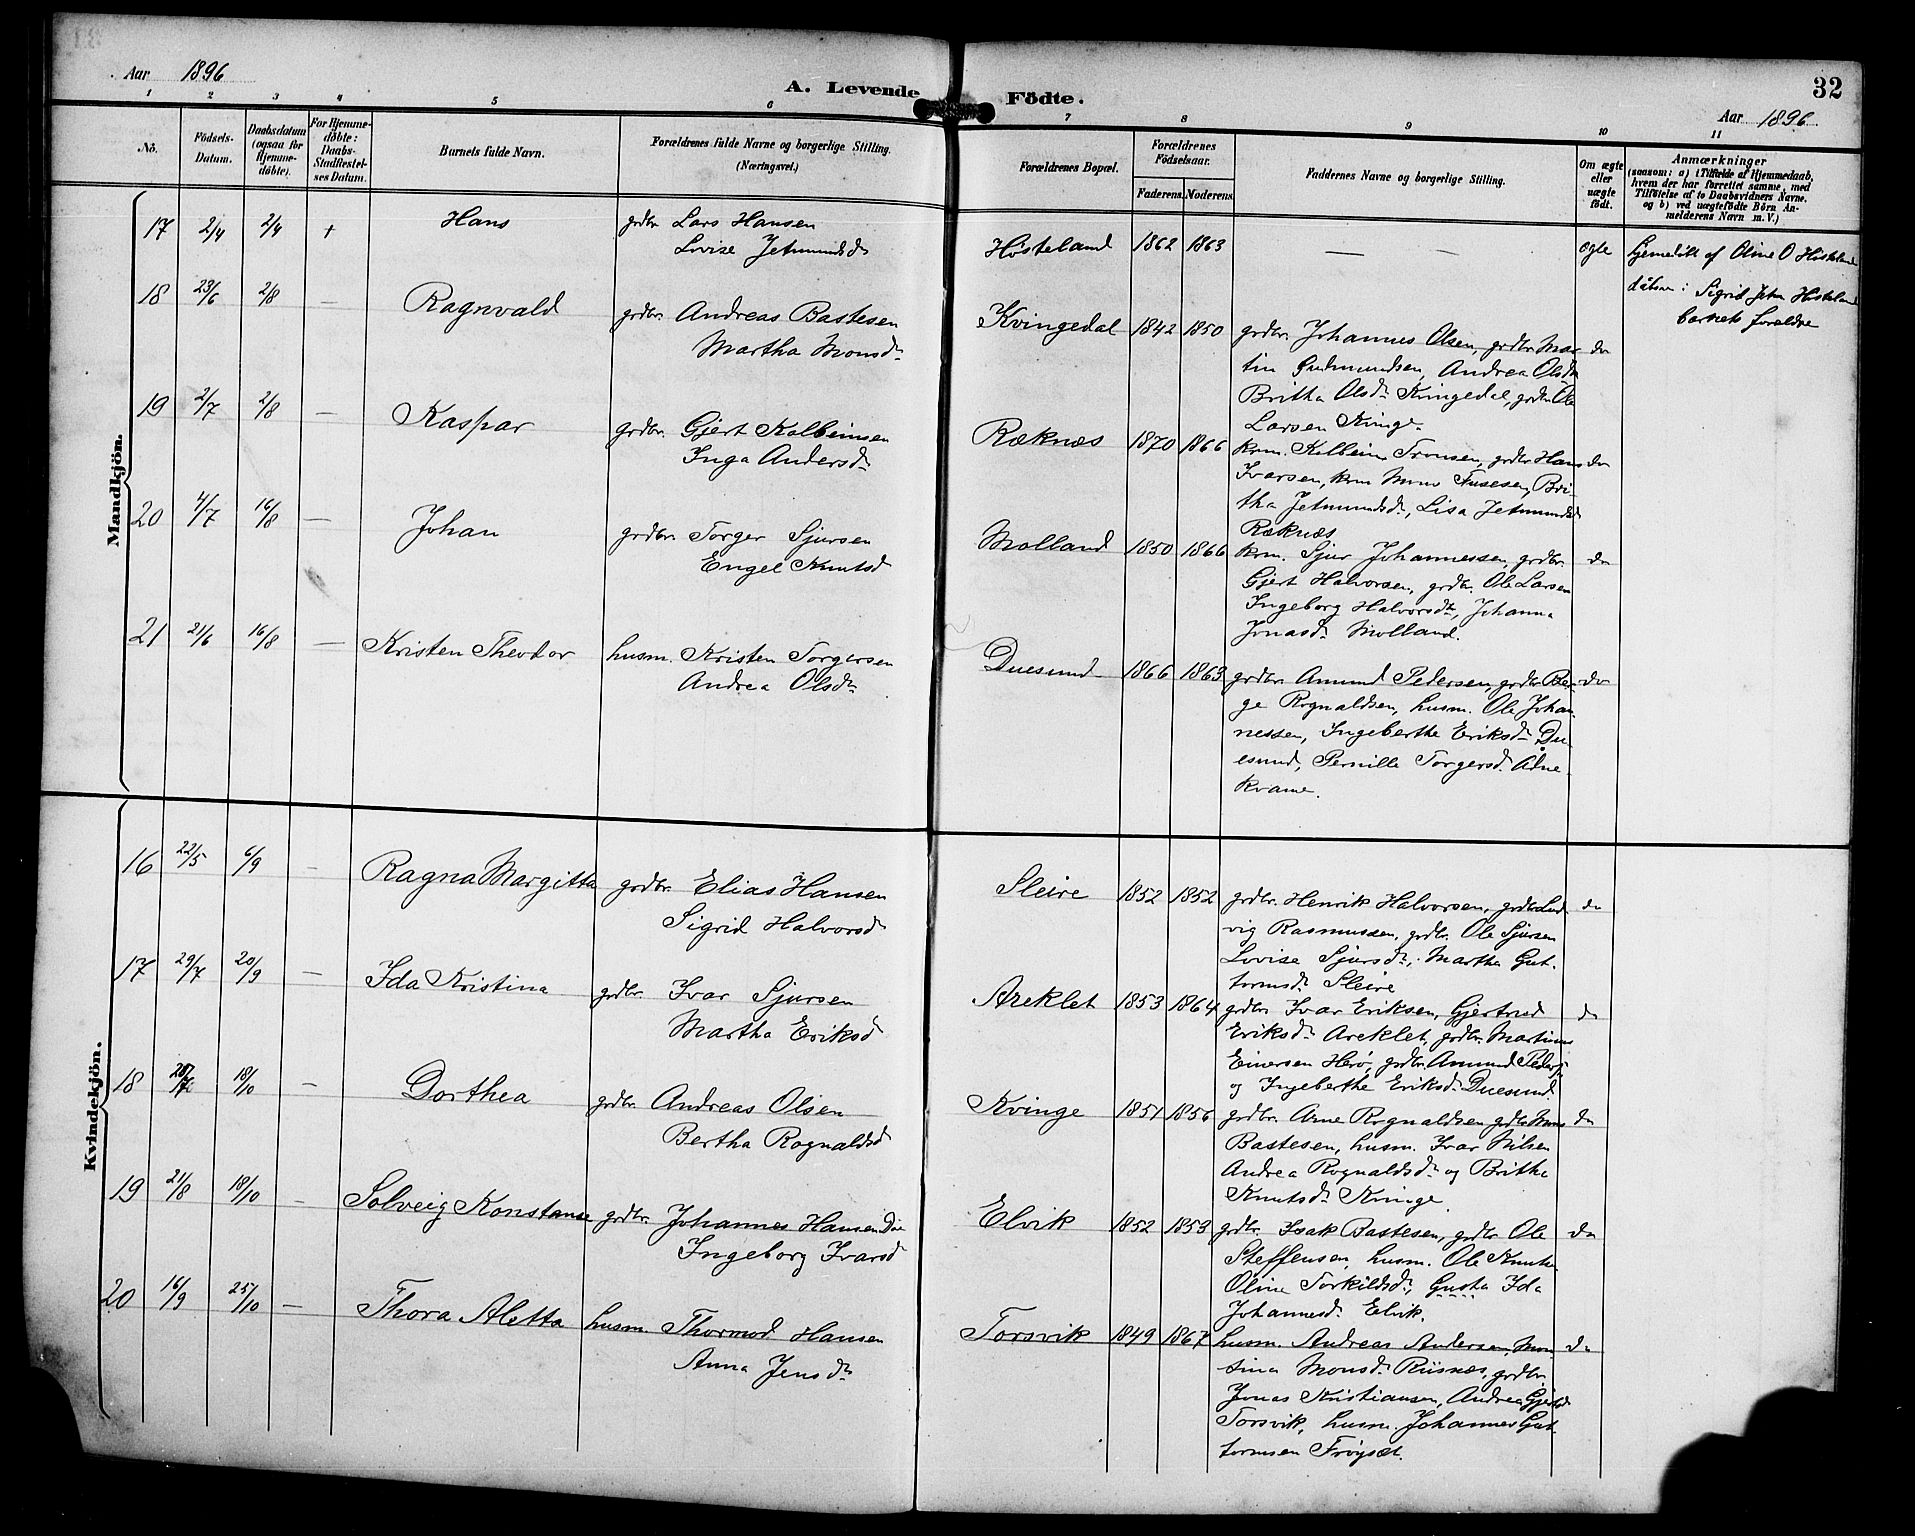 Aar 1896
A. Levende Födte.
32
Aar 1896
1 2 3 4 5 6 7 8 9 10 11
No.
Födsels-Datum.
Daabsdatum (ogsaa for Hjemme-döbte).
For Hjemme-döbte: Daabs-Stadfæstel-ses Datum.
Barnets fulde Navn.
Forældrenes fulde Navne og borgerlige Stilling.
(Næringsvei.)
Forældrenes Bopæl.
Forældrenes Födselsaar.
Faderens. Moderens.
Faddernes Navne og borgerlige Stilling.
Om ægte eller uægte födt.
Anmærkninger
(saasom: a) i Tilfælde af Hjemmedaab,
hvem der har forrettet samme, med
Tilföielse af to Daabsvidners Navne.
og b) ved uægtefödte Börn An-
melderens Navn m. V.)
Mandkjön.
17 2/4 2/4 + Hans grdbr. Lars Hansen
Lovise Jetmundsd.
Høsteland 1862 1863 — — egte
Hjemedøbt af Oline O Høsteland
dåbsv: Sigrid Jetm Høsteland
barnets forældre
18 23/6 2/8 — Ragnvald grdbr. Andreas Bastesen
Martha Monsd.
Kvingedal 1842 1850 grdbr. Johannes Olsen, grdbr. Mar-
tin Gudmundsen, Andrea Olsd.
Britha Olsd. Kvingedal, grdbr. Ole
Larsen Kvinge. do
19 2/7 2/8 — Kaspar grdbr. Gjert Kolbeinsen
Inga Andersd.
Ræknæs 1870 1866 krm. Kolbein Tronsen, grdbr. Hans
Ivarsen, krm Mons Fusesen, Bri-
tha Jetmundsd., Lisa Jetmundsd.
Ræknæs do
20 4/7 16/8 — Johan grdbr. Torger Sjursen
Engel Knutsd
Molland 1850 1866 krm. Sjur Johannessen, grdbr.
Gjert Halvorsen, grdbr. Ole Larsen
Ingeborg Halvorsd., Johanna
Jonasd. Molland. do
21 21/6 16/8 — Kristen Theodor husm. Kristen Torgersen
Andrea Olsd.
Duesund 1866 1863 grdbr. Amund Pedersen, grdbr. Bør-
ge Rognaldsen, husm. Ole Johan-
nessen, Ingeberthe Eriksd. Du-
esund, Pernille Torgersd. Ådne-
kvame. do
Kvindekjön.
16 22/5 6/9 — Ragna Margitta grdbr. Elias Hansen
Sigrid Halvorsd
Sleire 1852 1852 grdbr. Henrik Halvorsen, grdbr. Lud-
vig Rasmussen, grdbr. Ole Sjursen
Lovise Sjursd., Martha Gut-
tormsd. Sleire do
17 29/7 20/9 — Ida Kristina grdbr. Ivar Sjursen
Martha Eriksd
Areklet 1853 1864 grdbr. Ivar Eriksen, Gjertrud
Eriksd. Areklet, grdbr. Martinus
Einersen Herø, grdbr. Amund Pedersen
og Ingeberthe Eriksd. Duesund. do
18 28/7 18/10 — Dorthea grdbr. Andreas Olsen
Bertha Rognaldsd
Kvinge 1851 1856 grdbr. Arne Rognaldsen grdbr. Mons
Bastesen, husm. Ivar Nilsen
Andrea Rognaldsd. og Britha
Knutsd. Kvinge. do
19 21/8 18/10 — Solveig Konstanse grdbr. Johannes Hansen Due
Ingeborg Ivarsd
Elvik 1852 1853 grdbr. Isak Bastesen, grdbr Ole
Steffensen, husm. Ole Knuts.
Oline Torkildsd., Gusta Ida
Johannesd. Elvik. do
20 16/9 25/10 — Thora Aletta husm. Thormod Hansen
Anna Jensd.
Torsvik 1849 1867 husm. Andreas Andersen, Mon-
sina Monsd. Riisnes, grdbr.
Jonas Kristiansen, Andrea Gjertsd
Torsvik, husm. Johannes Gut-
tormsen Frøyset. do